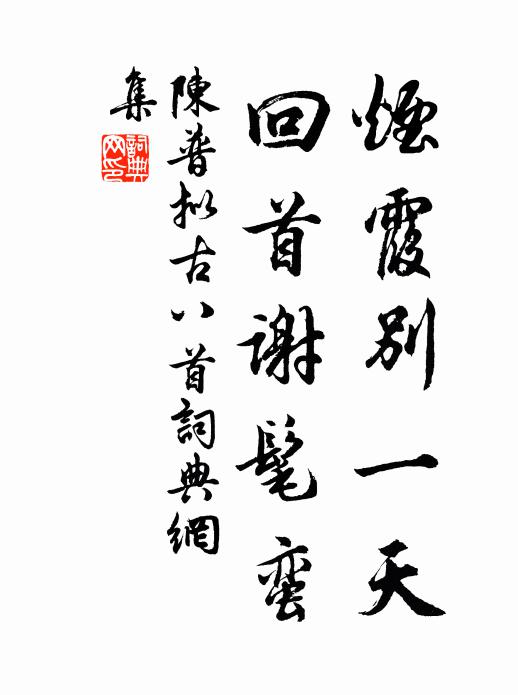 煙霞別一天
回首謝髦蛮
陳普拟古八首詞典網
集
詞典網印